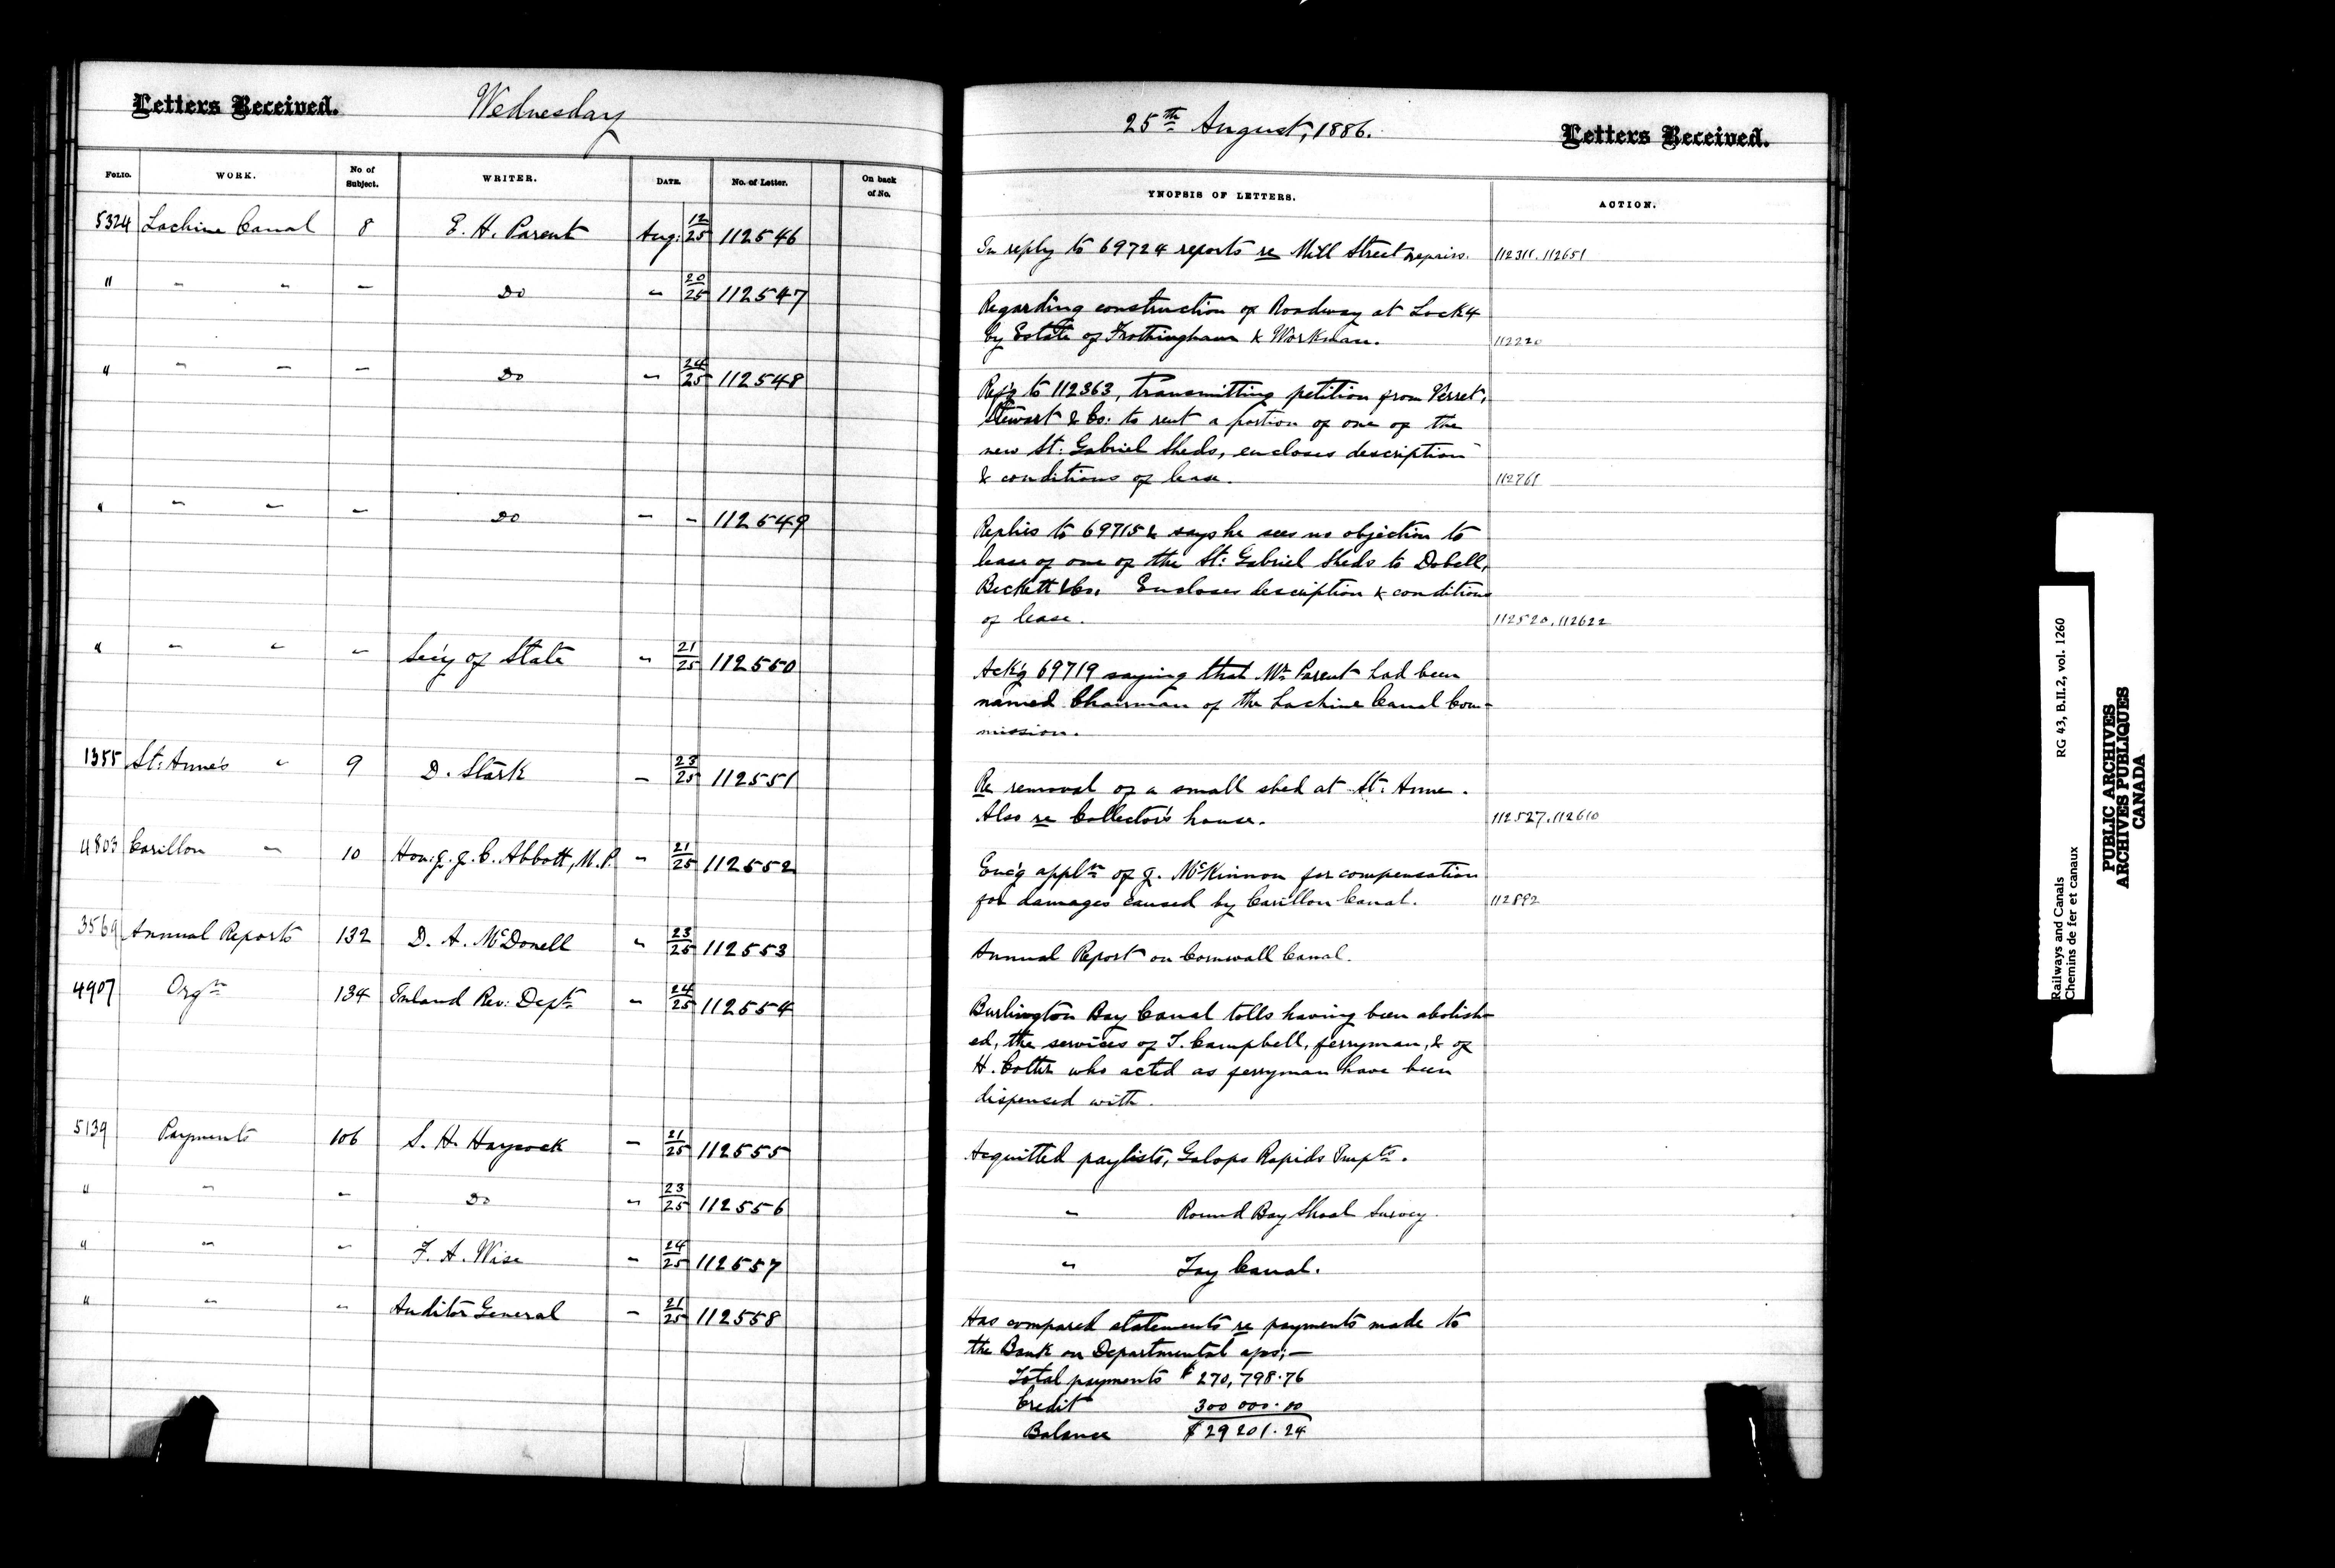 Letters Received. Wednesday
FOLIO. WORK. No of Subject. WRITER. DATE. No. of Letter. On back of No.
5324 Lachine Canal 8 E. H. Parent Aug: 12/25 112546
" " " " Do " 20/25 112547
" " " " Do " 24/25 112548
" " " " Do " " 112549
" " " " Sec'y of State " 21/25 112550
1355 St: Anne's " 9 D. Stark " 23/25 112551
4803 Carillon " 10 Hon: J. J. C. Abbott, M.P. " 21/25 112552
3569 Annual Reports 132 D. A. McDonell " 23/25 112553
4907 Orgn 134 Inland Rev: Dept " 24/25 112554
5139 Payments 106 S. H. Haycock " 21/25 112555
" " " Do " 23/25 112556
" " " F. A. Wise " 24/25 112557
" " " Auditor General " 21/25 112558
25th August, 1886. Letters Received.
YNOPSIS OF LETTERS. ACTION.
In reply to 69724 reports re Mill Street repairs. 112311. 112651
Regarding construction of Roadway at Lock 4
by Estate of Frothingham & Workman. 112220
Ref'g to 112363, transmitting petition from Verret,
Stewart & Co: to rent a portion of one of the
new St: Gabriel Sheds, encloses description
& conditions of lease. 112761
Replies to 69715 & says he sees no objection to
lease of one of the St: Gabriel Sheds to Dobell,
Beckett & Co. Encloses description & conditions
of lease. 112520. 112622
Ack'g 69719 saying that Mr Parent had been
named Chairman of the Lachine Canal Com-
mission.
Re removal of a small shed at St: Anne.
Also re Collector's house. 112527. 112610
Enc'g appl'n of J. McKinnon for compensation
for damages caused by Carillon Canal. 112892
Annual Report on Cornwall Canal.
Burlington Bay Canal tolls having been abolish-
ed, the services of T. Campbell, ferryman, & of
H. Cotter who acted as ferryman have been
dispensed with.
Acquitted paylists, Galops Rapids Impts.
" Round Bay Shoal Survey.
" Tay Canal.
Has compared statements re payments made to
the Bank on Departmental aps;—
Total payments $270,798.76
Credit 300 000.00
Balance $29 201.24
Railways and Canals RG 43, B.II.2, vol. 1260
Chemins de fer et canaux
PUBLIC ARCHIVES
ARCHIVES PUBLIQUES
CANADA